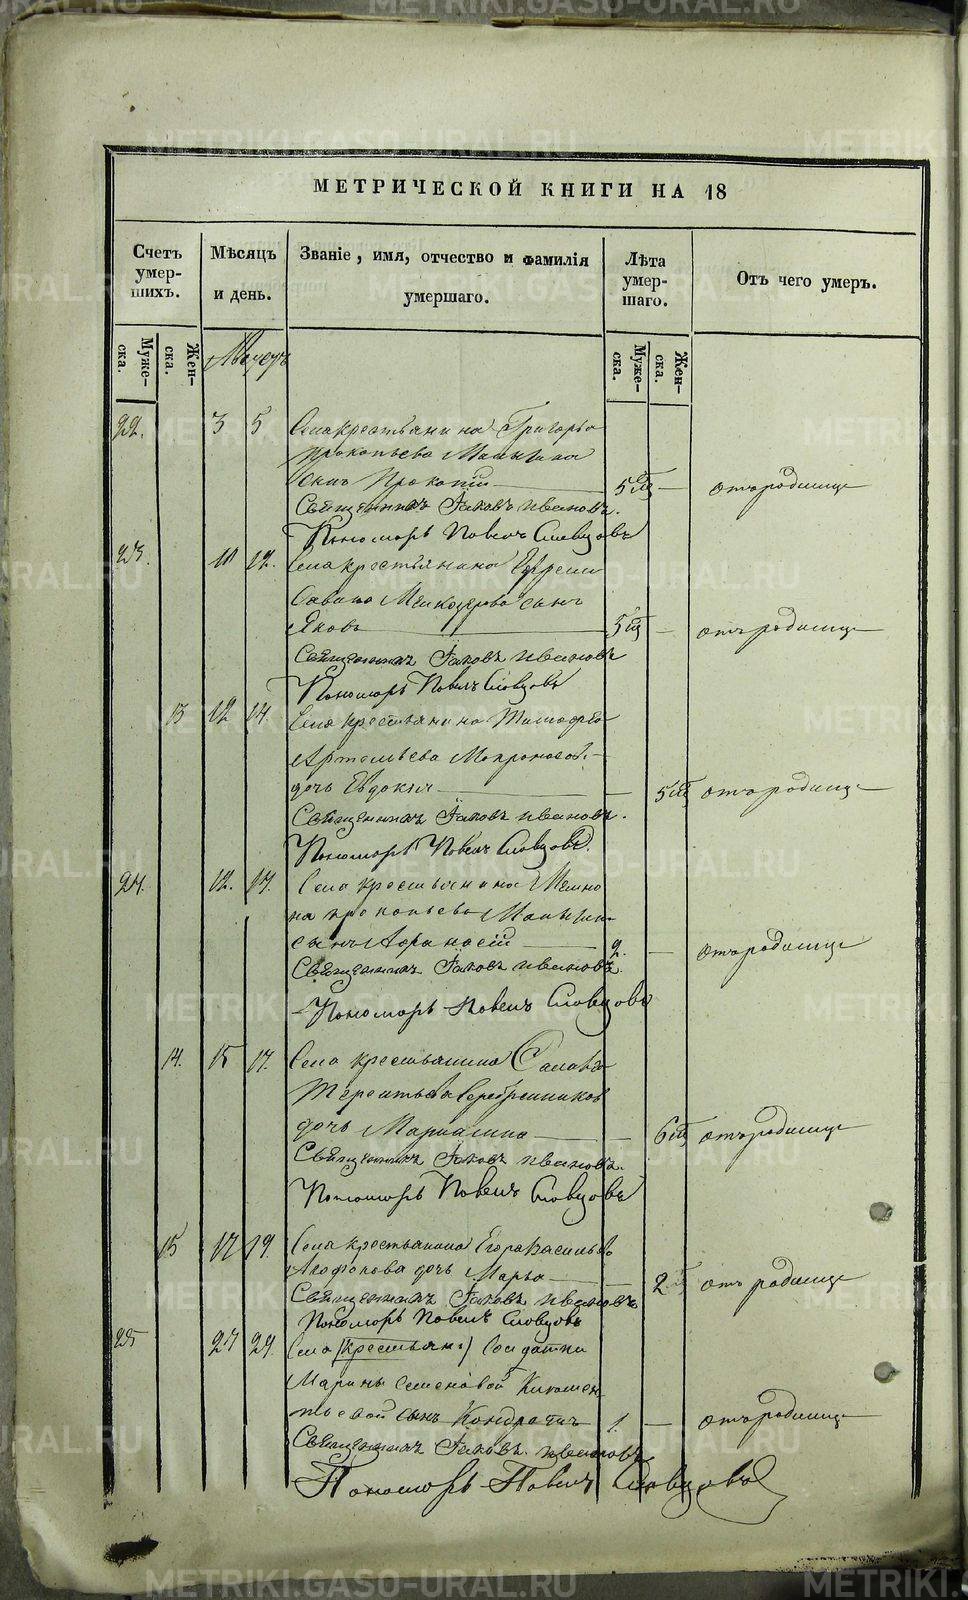 МЕТРИЧЕСКОЙ КНИГИ НА 18
Счетъ умер-шихъ.
Мѣсяцъ и день.
Званіе, имя, отчество и фамилія умершаго.
Лѣта умер-шаго.
Отъ чего умеръ.
Муже-ска.
Жен-ска.
Муже-ска.
Жен-ска.
22. 3 5 Села крестьянина Григорья
Прокопьева
сынъ Прокопій 5 отъ родимца
Священникъ Іаковъ Ивановъ.
Пономарь Павелъ Словцовъ
23. 12. Села крестьянина Ефрема
Савина сынъ
Яковъ 5 отъ родимца
Священникъ Іаковъ Ивановъ
Пономарь Павелъ Словцовъ
13 12 14. Села крестьянина Тимофея
Артемьева Мокроносова
дочь Евдокія 5 отъ родимца
Священникъ Іаковъ Ивановъ.
Пономарь Павелъ Словцовъ.
24. 12. 14. Села крестьянина
Прокопьева
сынъ Афанасій 2. отъ родимца
Священникъ Іаковъ Ивановъ.
Пономарь Павелъ Словцовъ
14. 15 17. Села крестьянина Савы
Терентьева Серебренникова
дочь Марианна 6 отъ родимца
Священникъ Іаковъ Ивановъ.
Пономарь Павелъ Словцовъ
15 17 19. Села крестьянина Егора Васильева
дочь Марья 2 отъ родимца
Священникъ Іаковъ Ивановъ
Пономарь Павелъ Словцовъ
25 27 29. Села (крестьян.) солдатки
Марины Семеновой
сынъ Кондратій 1. отъ родимца
Священникъ Іаковъ Ивановъ
Пономарь Павелъ Словцовъ
METRIKI.GASO-URAL.RU